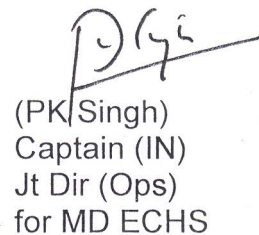 (PK Singh)
Captain (IN)
Jt Dir (Ops)
for MD ECHS